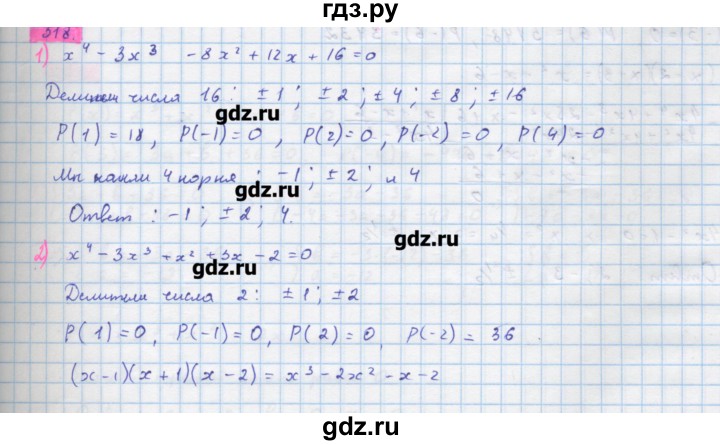 гдз.ру
318.
1) x⁴ - 3x³ - 8x² + 12x + 16 = 0
Делители числа 16 : ±1 ; ±2 ; ±4 ; ±8 ; ±16
P(1) = 18, P(-1) = 0, P(2) = 0, P(-2) = 0, P(4) = 0
гдз.ру
Мы нашли 4 корня : -1 ; ±2 ; и 4
гдз.ру
Ответ : -1 ; ±2 ; 4.
гдз.ру
2) x⁴ - 3x³ + x² + 3x - 2 = 0
гдз.ру
Делители числа 2 : ±1 ; ±2
гдз.ру
P(1) = 0, P(-1) = 0, P(2) = 0, P(-2) = 36
(x-1)(x+1)(x-2) = x³ - 2x² - x - 2
гдз.ру